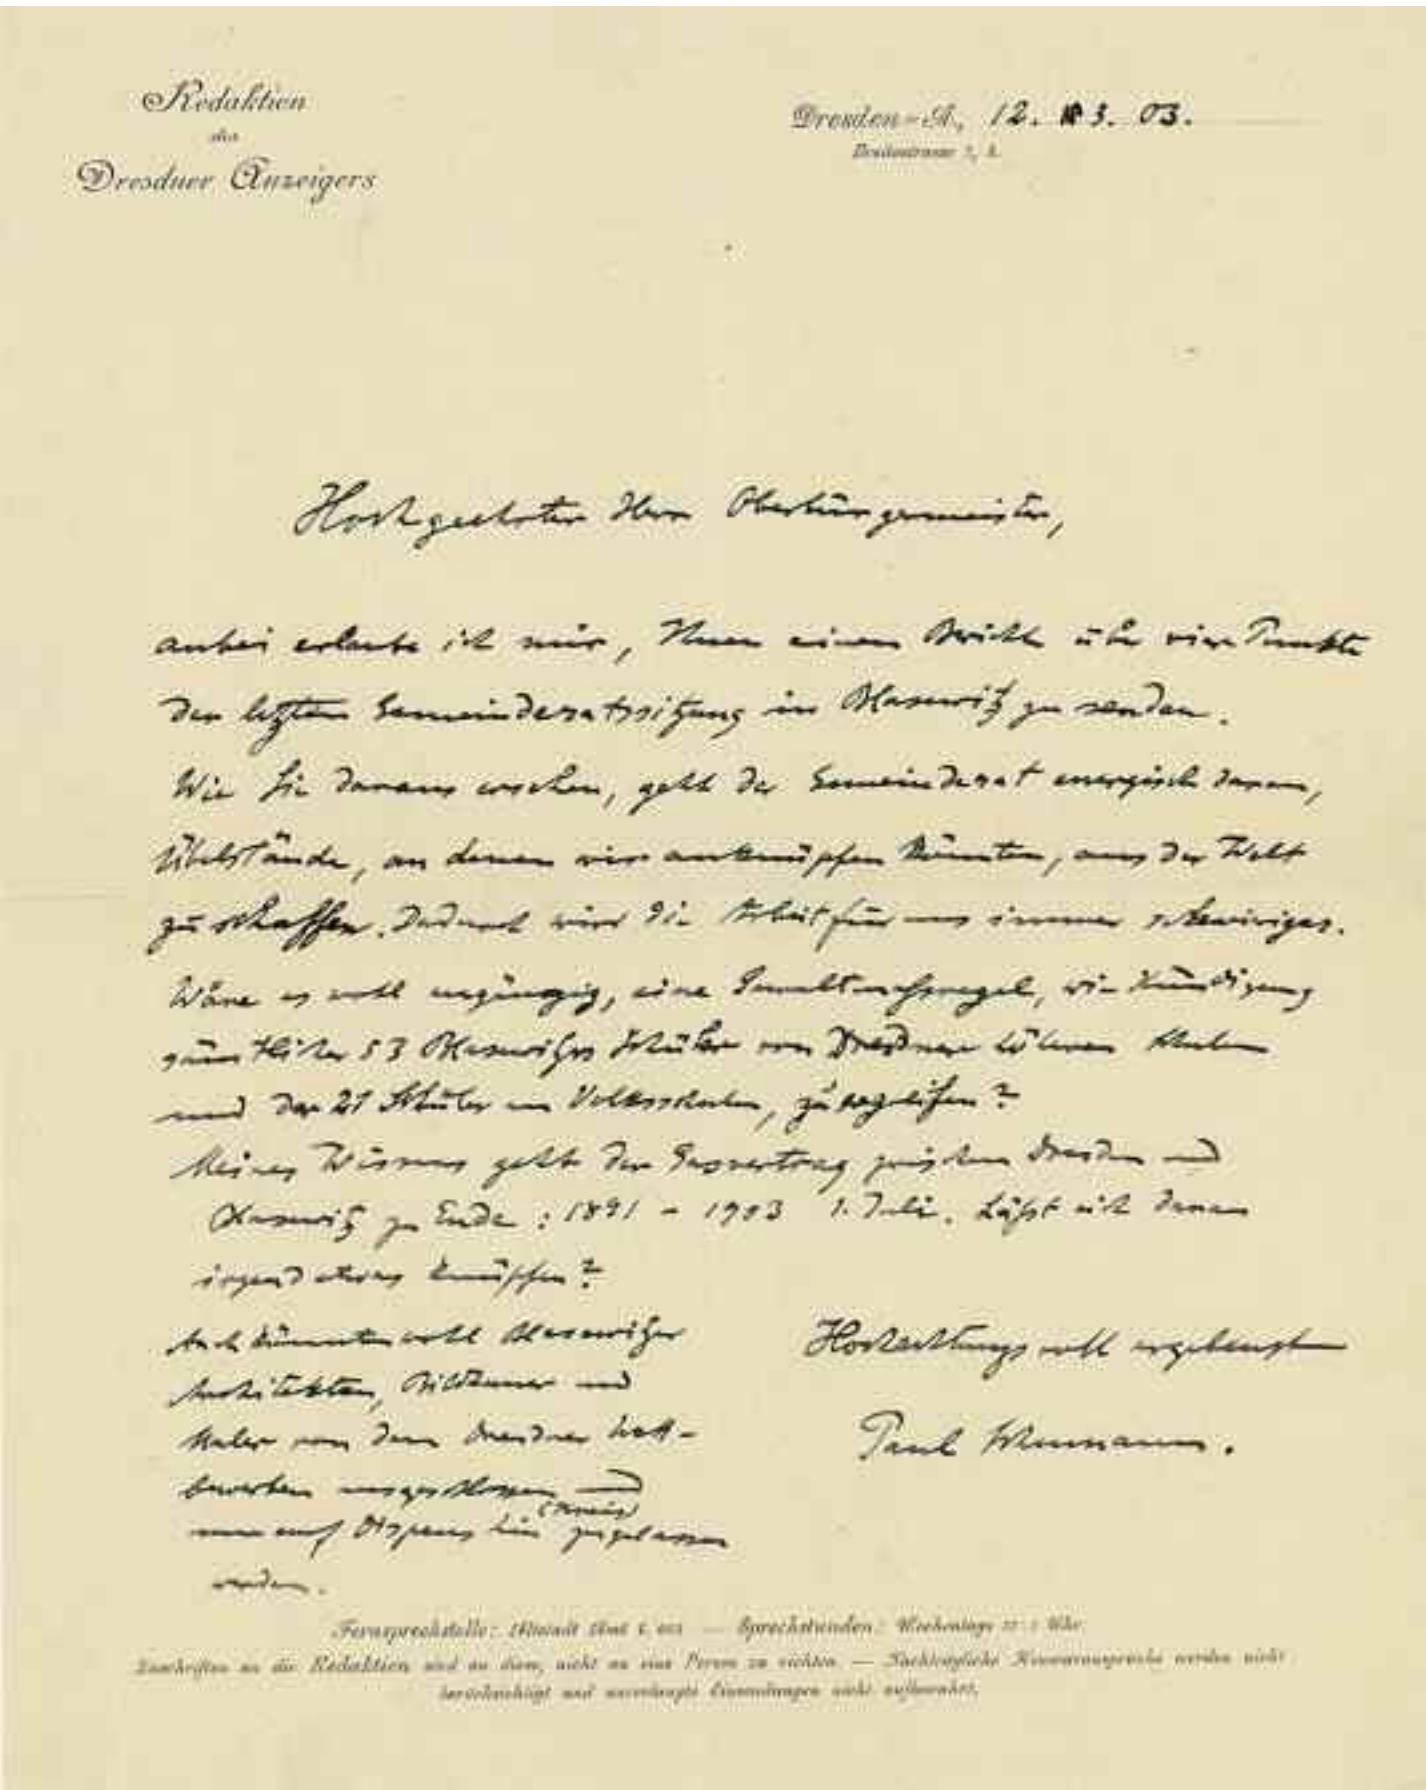 Redaktion
des
Dresdner Anzeigers
Dresden-A., 12. 3. 03.
Breitestrasse 7, I.
Hochgeehrter Herr Oberbürgermeister,
anbei erlaube ich mir, Ihnen einen Bericht über vier Punkte
der letzten Gemeinderatssitzung in Blasewitz zu senden.
Wie Sie daraus ersehen, geht der Gemeinderat energisch daran,
Übelstände, an denen wir anknüpfen könnten, aus der Welt
zu schaffen. Dadurch wird die Arbeit für uns immer schwieriger.
Wäre es wohl angängig, eine Gewaltmaßregel, wie Kündigung
sämtlicher 53 Blasewitzer Schüler von Dresdner höheren Schulen
und der 21 Schüler von Volksschulen, zu ergreifen?
Meines Wissens geht der Gasvertrag zwischen Dresden und
Blasewitz zu Ende: 1891 - 1903 1. Juli. Läßt sich daran
irgend etwas knüpfen?
Auch könnten wohl Blasewitzer
Architekten, Bildhauer und
Maler von dem Dresdner Wett-
bewerben ausgeschlossen und
nur auf Dispens hin zugelassen
werden.
Hochachtungsvoll ergebenst
Paul Schumann.
Fernsprechstelle: Altstadt Amt I, — Sprechstunden: Wochentags Uhr
Zuschriften an die Redaktion sind an diese, nicht an eine Person zu richten. — Nachträgliche Honoraransprüche werden nicht
berücksichtigt und unverlangte Einsendungen nicht aufbewahrt.